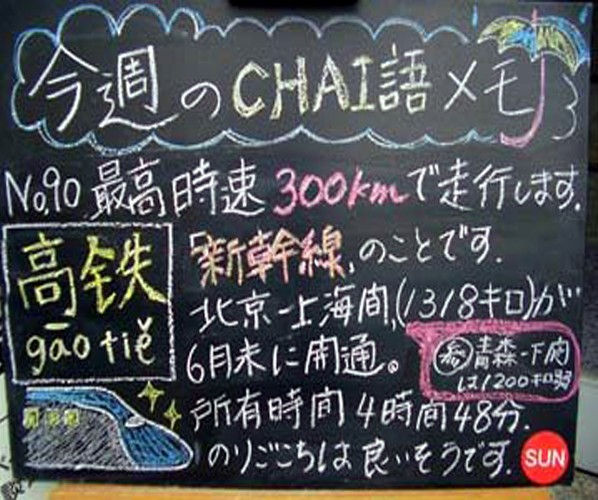 今週のCHAI語メモ
No,90 最高時速300kmで走行します.
高铁
gāo tiě
「新幹線」のことです.
北京-上海間,(1318キロ)が
6月末に開通。
参 青森-下関
は1200キロ弱
所有時間4時間48分.
のりごこちは良いそうです.
SUN